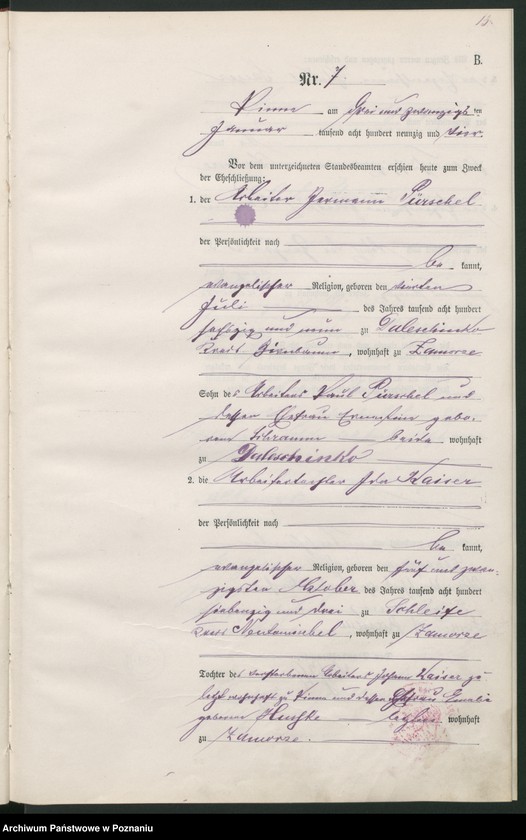 B.
Nr. 7.
Pinne am drei und zwanzigsten
Januar tausend acht hundert neunzig und vier.
Vor dem unterzeichneten Standesbeamten erschien heute zum Zweck
der Eheschließung:
1. der Arbeiter Hermann Pürschel
der Persönlichkeit nach
be kannt,
evangelischer Religion, geboren den vierten
Juli des Jahres tausend acht hundert
sechszig und neun zu Duleschinko
Kreis Birnbaum, wohnhaft zu Zamorze
Sohn des Arbeiters Paul Pürschel und
dessen Ehefrau Ernestine gebo-
renen beide wohnhaft
zu Duleschinko
2. die Arbeitertochter Ida Kaiser
der Persönlichkeit nach
be kannt,
evangelischer Religion, geboren den fünf und zwan-
zigsten Oktober des Jahres tausend acht hundert
siebenzig und drei zu Schleife
Kreis Neutomischel, wohnhaft zu Zamorze
Tochter des verstorbenen Arbeiters Johann Kaiser zu-
letzt wohnhaft zu Pinne und dessen Ehefrau Emilie
geborenen wohnhaft
zu Zamorze.
Archiwum Państwowe w Poznaniu